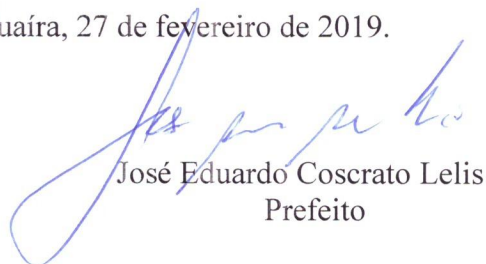 uaíra, 27 de fevereiro de 2019.
José Eduardo Coscrato Lelis
Prefeito